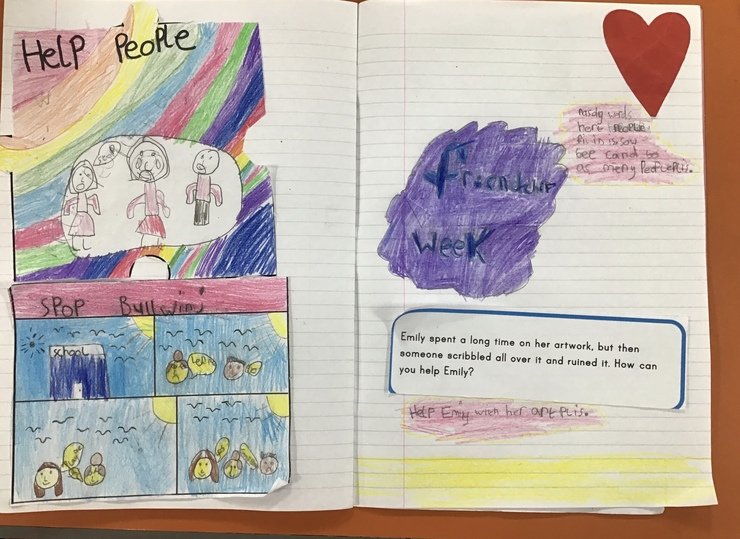 HelP PeoPle
STOP
SPOP Bullwing
School
Friendur
Week
nasdy words
here PeoPle
fil in is, sow
bee cand to
as meny PeoPle Plis.
Emily spent a long time on her artwork, but then
someone scribbled all over it and ruined it. How can
you help Emily?
HelP Emily with her art Plis.